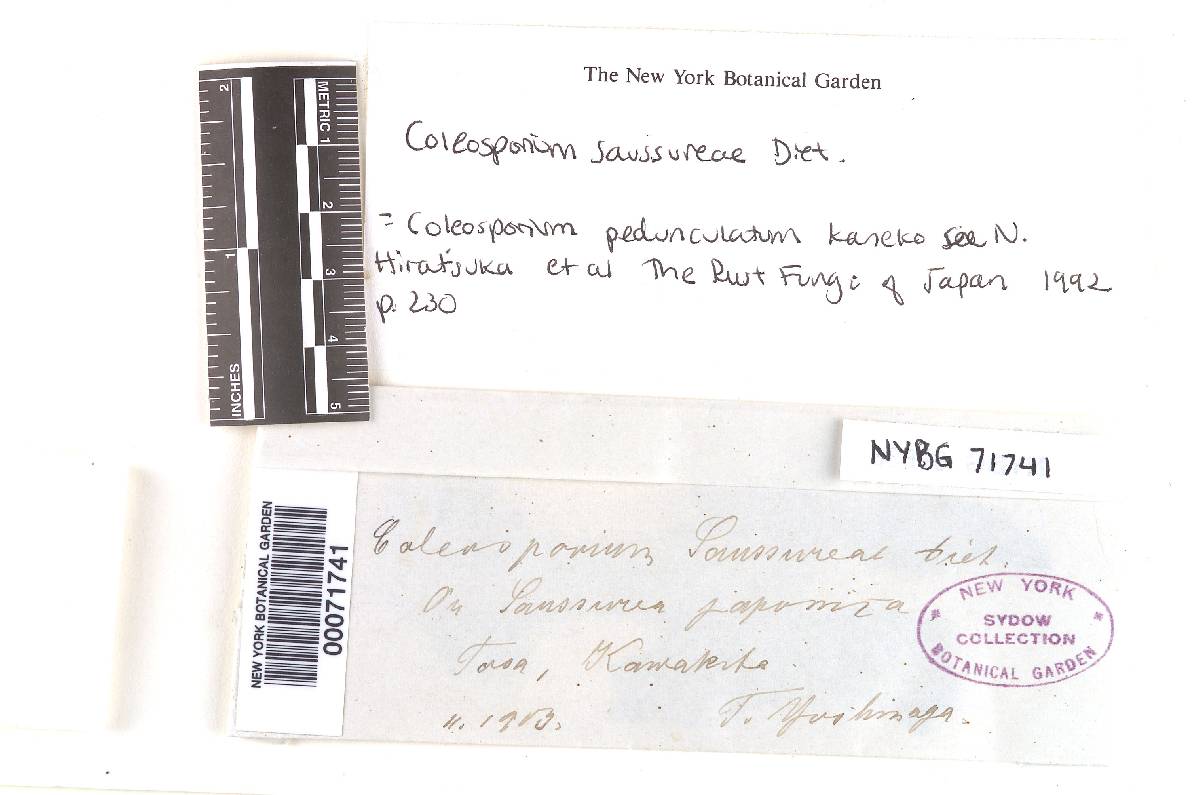 The New York Botanical Garden
Coleosporium saussureae Diet.
= Coleosporium pedunculatum Kaneko see N.
Hiratsuka et al The Rust Fungi of Japan 1992
p. 230
2
1
INCHES
METRIC 1
2
3
4
5
NYBG 71741
NEW YORK BOTANICAL GARDEN
00071741
Coleosporium Saussureae Diet.
On Saussurea japonica
Tosa, Kawakita
11. 1903.
T. Yoshinaga.
* NEW YORK *
SYDOW
COLLECTION
BOTANICAL GARDEN